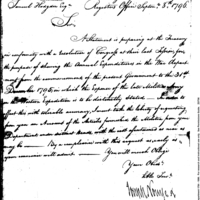 Samuel Hodgdon Esqr
Registers Office Septr 8. 1796
Sir,
A Statement is preparing at the Treasury
in conformity with a resolution of Congress at their last Session, for
the purpose of shewing the Annual Expenditures in the War Depart
ment from the commencement of the present Government to the 31st
December 1795; in which the Expence of the late Militia
Expedition is to be distinctly Stated
this with tolerable accuracy, I must take the liberty of requesting
from you an Account of the Articles furnished the Militia from your
Department
as may
be. By a compliance with this request as early as
you
Your Obed.
Hble Serv.
Joseph Nourse R